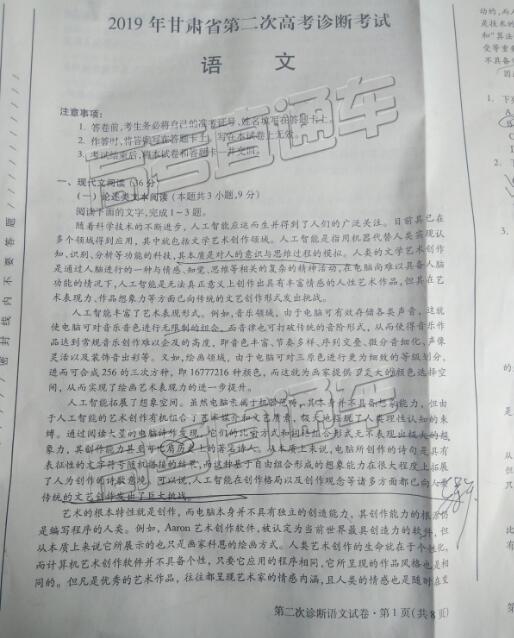 2019年甘肃省第二次高考诊断考试
语 文
注意事项:
1. 答卷前,考生务必将自己的准考证号、姓名填写在答题卡上。
2. 作答时,将答案写在答题卡上。写在本试卷上无效。
3. 考试结束后,将本试卷和答题卡一并交回。
一、现代文阅读(36分)
(一)论述类文本阅读(本题共3小题,9分)
阅读下面的文字,完成1~3题。
随着科学技术的不断进步,人工智能应运而生并得到了人们的广泛关注。目前其已在
多个领域得到应用,其中就包括文学艺术创作领域。人工智能是指用机器代替人类实现认
知、识别、分析等功能的科技,其本质是对人的意识与思维过程的模拟。人类的文学艺术创作
是通过人脑进行的一种与情感、知觉、思维等相关的复杂的精神活动,在电脑尚难以具备人脑
功能的情况下,人工智能是无法真正意义上创作出具有丰富情感的人性艺术作品,但其在艺
术表现力、作品想象力等方面已向传统的文艺创作形式发出挑战。
人工智能丰富了艺术表现形式。例如,音乐领域,由于电脑可有效存储各类声音,这就
使电脑可对音乐音色进行无限制的组合,而音律也可打破传统的音阶形式,从而使得音乐作
品达到常规音乐创作难以企及的高度,即音色丰富、节奏多样、序列交叠、微分音细化、声像
灵活以及装饰音出彩等。又如,绘画领域,由于电脑可对三原色进行更为细致的等级划分,
进而可合成256的三次方种,即16777216种颜色,而这就为画家提供了更大的颜色选择空
间,从而实现了绘画艺术表现力的进一步提升。
人工智能拓展了想象空间。虽然电脑本属于机器范畴,其本身并不具备想象能力,但由
于人工智能的艺术创作有机组合了艺术媒介和文艺质素,极大地拓展了人类理性认知的束
缚。通过阅读大量的电脑诗作发现,它们的比喻方式和词语组合形式无不表现出极大的想
象力,其创作能力甚至可比肩历史上的著名诗人。从本质上来说,电脑所创作的诗句是具有
表征性的文字符号随机搭接的结果,而这种基于自由组合形成的想象能力在很大程度上拓展
了人为创作的诗歌意境。可以说,人工智能在创作格局以及创作观念等诸多方面都已向人类
传统的文艺创作发出了巨大挑战。
艺术的根本特性就是创作,而电脑本身并不具有独立的创造能力,其创作能力的根源仍
是编写程序的人类。例如,Aaron艺术创作软件,被认定为当前世界最具创造力的软件,但
从本质上来说它所展示的也只是画家科恩的绘画方式。人类艺术创作的生命就在于个性化,
而计算机艺术创作软件并不具备个性,只要它应用的程序相同,它所呈现的作品风格也是相
同的。但凡是优秀的艺术作品,往往都呈现艺术家的情感内涵,且人类的情感也是随时在变
第二次诊断语文试卷·第1页(共8页)
密封线内不要答题